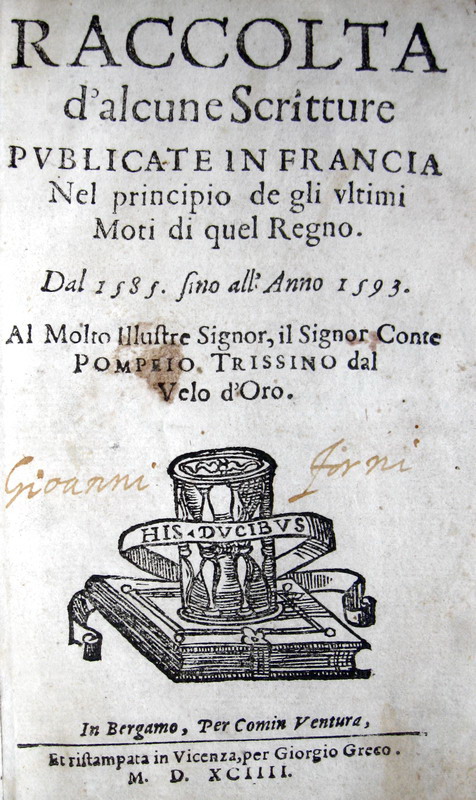 RACCOLTA
d'alcune Scritture
PVBLICATE IN FRANCIA
Nel principio de gli vltimi
Moti di quel Regno.
Dal 1585. ſino all' Anno 1593.
Al Molto Illuſtre Signor, il Signor Conte
POMPEIO TRISSINO dal
Velo d'Oro.
Gioanni Forni
HIS DVCIBVS
In Bergamo, Per Comin Ventura,
Et riſtampata in Vicenza, per Giorgio Greco.
M. D. XCIIII.